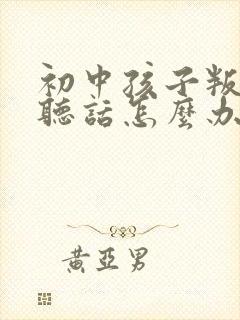 初中孩子叛
聽話怎麼办
黃亞男